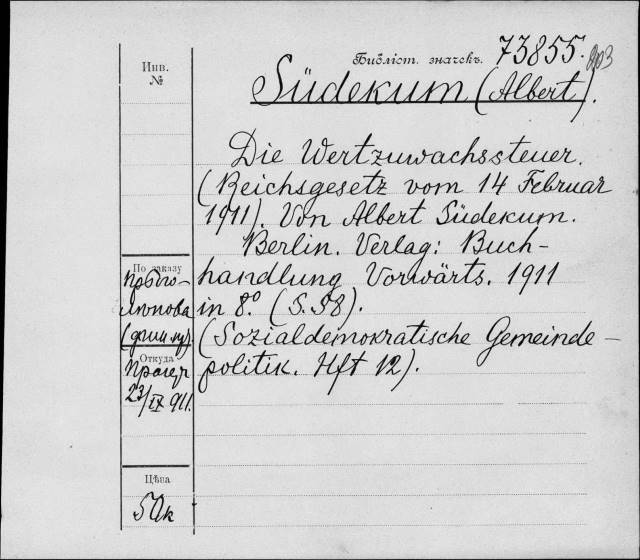 Библіот. значекъ. 73855.
Инв.
№
Südekum (Albert).
Die Wertzuwachssteuer.
(Reichsgesetz vom 14 Februar
1911). Von Albert Südekum.
Berlin. Verlag: Buch-
handlung Vorwärts. 1911
in 8º. (S. 58).
(Sozialdemokratische Gemeinde-
politik. Hft 12).
По заказу
Откуда
23/IX 911.
Цѣна
50к